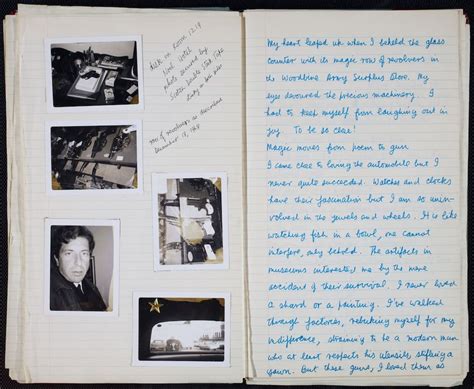 desk in Room 1218
Hotel
photo
by
Sister
row of revolvers as described
December 14, 1968
My heart leaped up when I beheld the glass
counter with its magic row of revolvers in
the Woodbine Army Surplus Store. My
eyes devoured the precious machinery. I
had to keep myself from laughing out in
joy. To be so close!
Magic moves from poem to gun.
I came close to loving the automobile but I
never quite succeeded. Watches and clocks
have their fascination but I am so unin-
volved in the jewels and wheels. It is like
watching fish in a bowl, one cannot
interfere, only behold. The artifacts in
museums interested me by the mere
accident of their survival. I never loved
a shard or a painting. I've walked
through factories, rebuking myself for my
indifference, straining to be a modern man
who at least respects his utensils, stifling a
yawn. But these guns, I loved them as